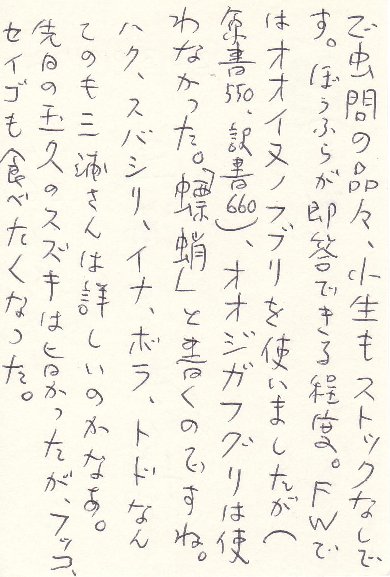 で虫問の品々、小生もストックなしで
す。ぼうふらが即答できる程度。FWで
はオオイヌノフグリを使いましたが(
原書550、訳書660)、オオジガフグリは使
わなかった。「螵蛸」と書くのですね。
ハク、スバシリ、イナ、ボラ、トドなん
てのも三浦さんは詳しいのかなあ。
先日の玉久のスズキは旨かったが、フッコ、
セイゴも食べたくなった。